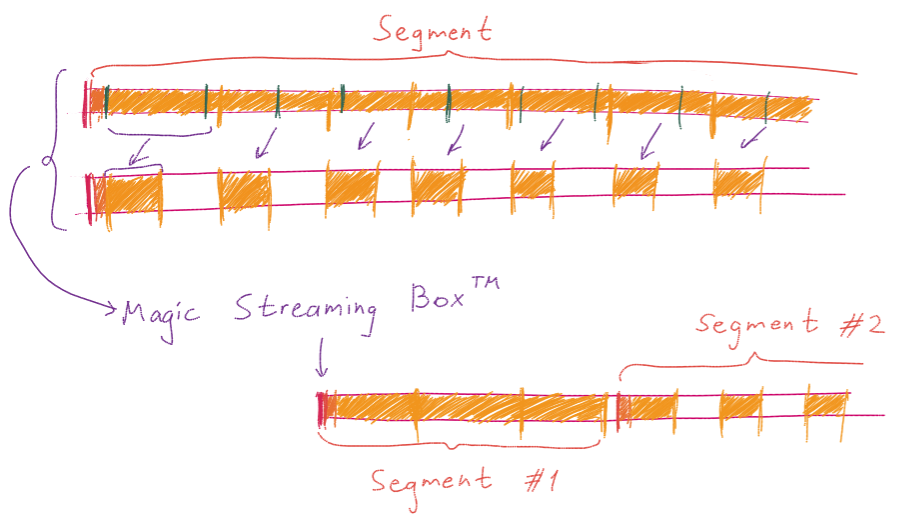 Segment
Magic Streaming Box™
Segment #2
Segment #1